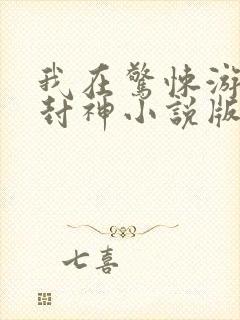 我在驚悚游
封神小說版
七喜